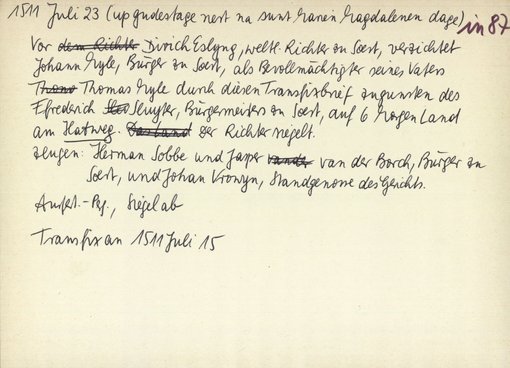 1511 Juli 23 (up gudestage nest na sunt Maren Magdalenen dage) in 87
Vor dem Richter Dirich Eslyng, weltl. Richter zu Soest, verzichtet
Johann Myle, Bürger zu Soest, als Bevollmächtigter seines Vaters
Thomas Myle durch diesen Transfixbrief zugunsten des
Efrederich Sluyter, Bürgermeisters zu Soest, auf 6 Morgen Land
am Hatweg. Das Land Der Richter siegelt.
Zeugen: Herman Sobbe und Jasper van der Borch, Bürger zu
Soest, und Johan Vronyn, Standgenosse des Gerichts.
Ausfert.-Pg., Siegel ab
Transfix an 1511 Juli 15